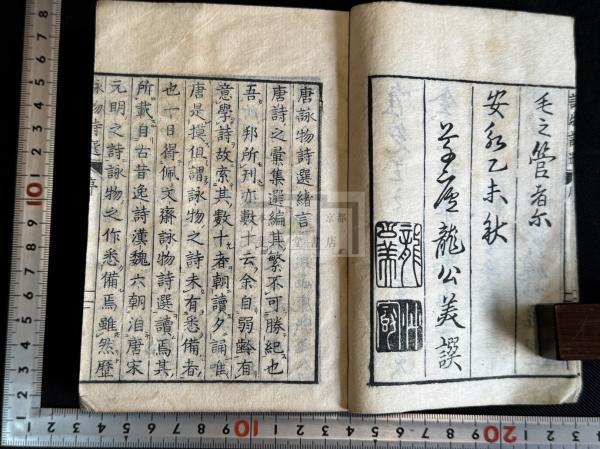 毛之管者尓
安永乙未秋
草廬龍公美譔
唐詠物詩選緒言
唐詩之彙集選編其繁不可勝紀也
吾邦所刊亦數十云余自弱齡有
意學詩故索其數十卷朝讀夕誦惟
唐是摸但謂詠物之詩未有悉備者
也一日得佩文齋詠物詩選讀焉其
所載自古昔逸詩漢魏六朝洎唐宋
元明之詩詠物之作悉備焉雖然歷
詠物詩選
序